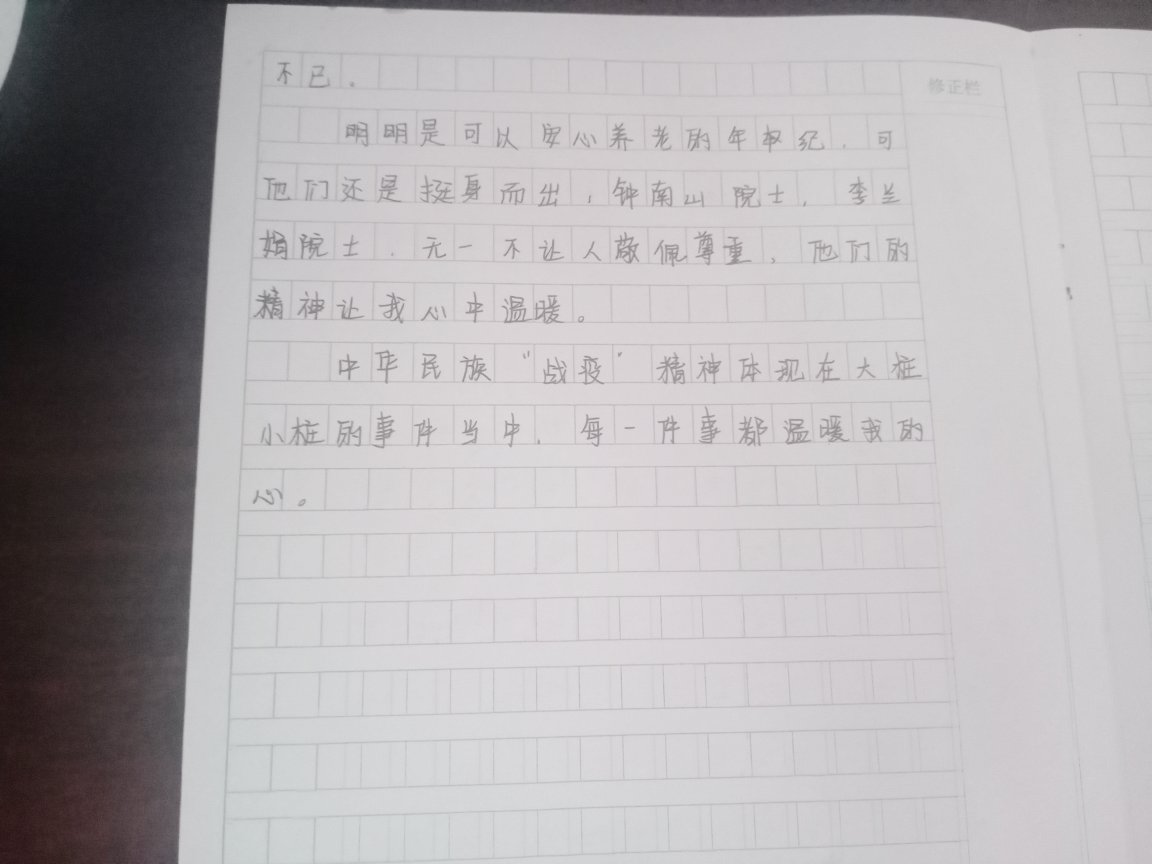 不已。
修正栏
明明是可以安心养老的年纪，可
他们还是挺身而出，钟南山院士，李兰
娟院士，无一不让人敬佩尊重，他们的
精神让我心中温暖。
中华民族“战疫”精神体现在大桩
小桩的事件当中，每一件事都温暖我的
心。